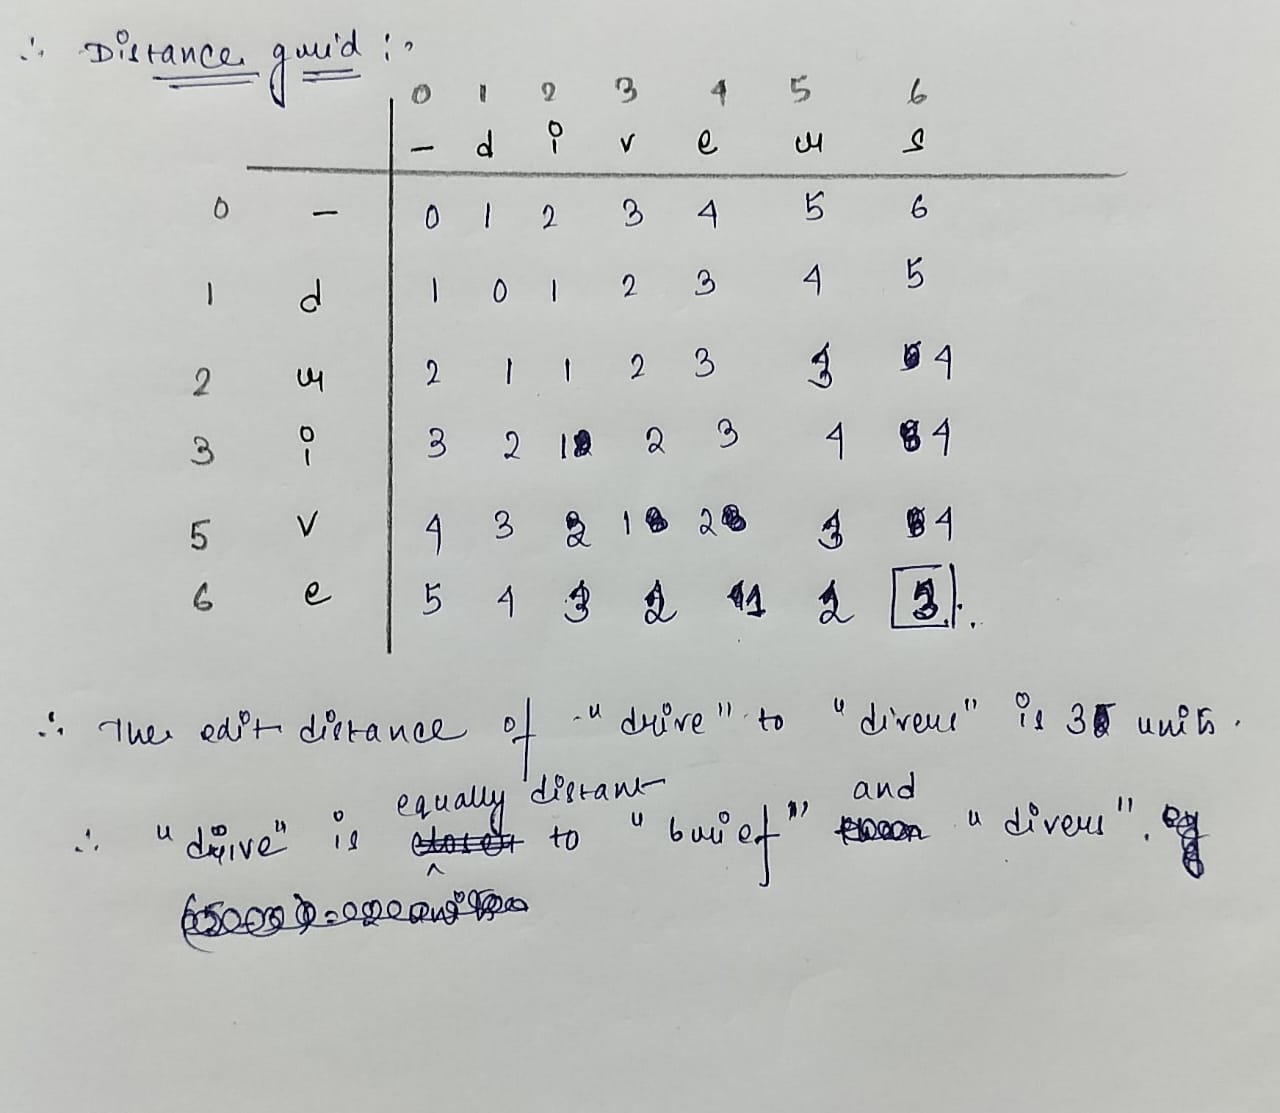 ∴ Distance grid :-
0 1 2 3 4 5 6
- d i v e r s
0 - 0 1 2 3 4 5 6
1 d 1 0 1 2 3 4 5
2 r 2 1 1 2 3 3 4
3 i 3 2 1 2 3 4 4
5 v 4 3 2 1 2 3 4
6 e 5 4 3 2 1 2 3
∴ The edit distance of "drive" to "divers" is 3 units.
equally distant and
∴ "drive" is to "brief" "divers".